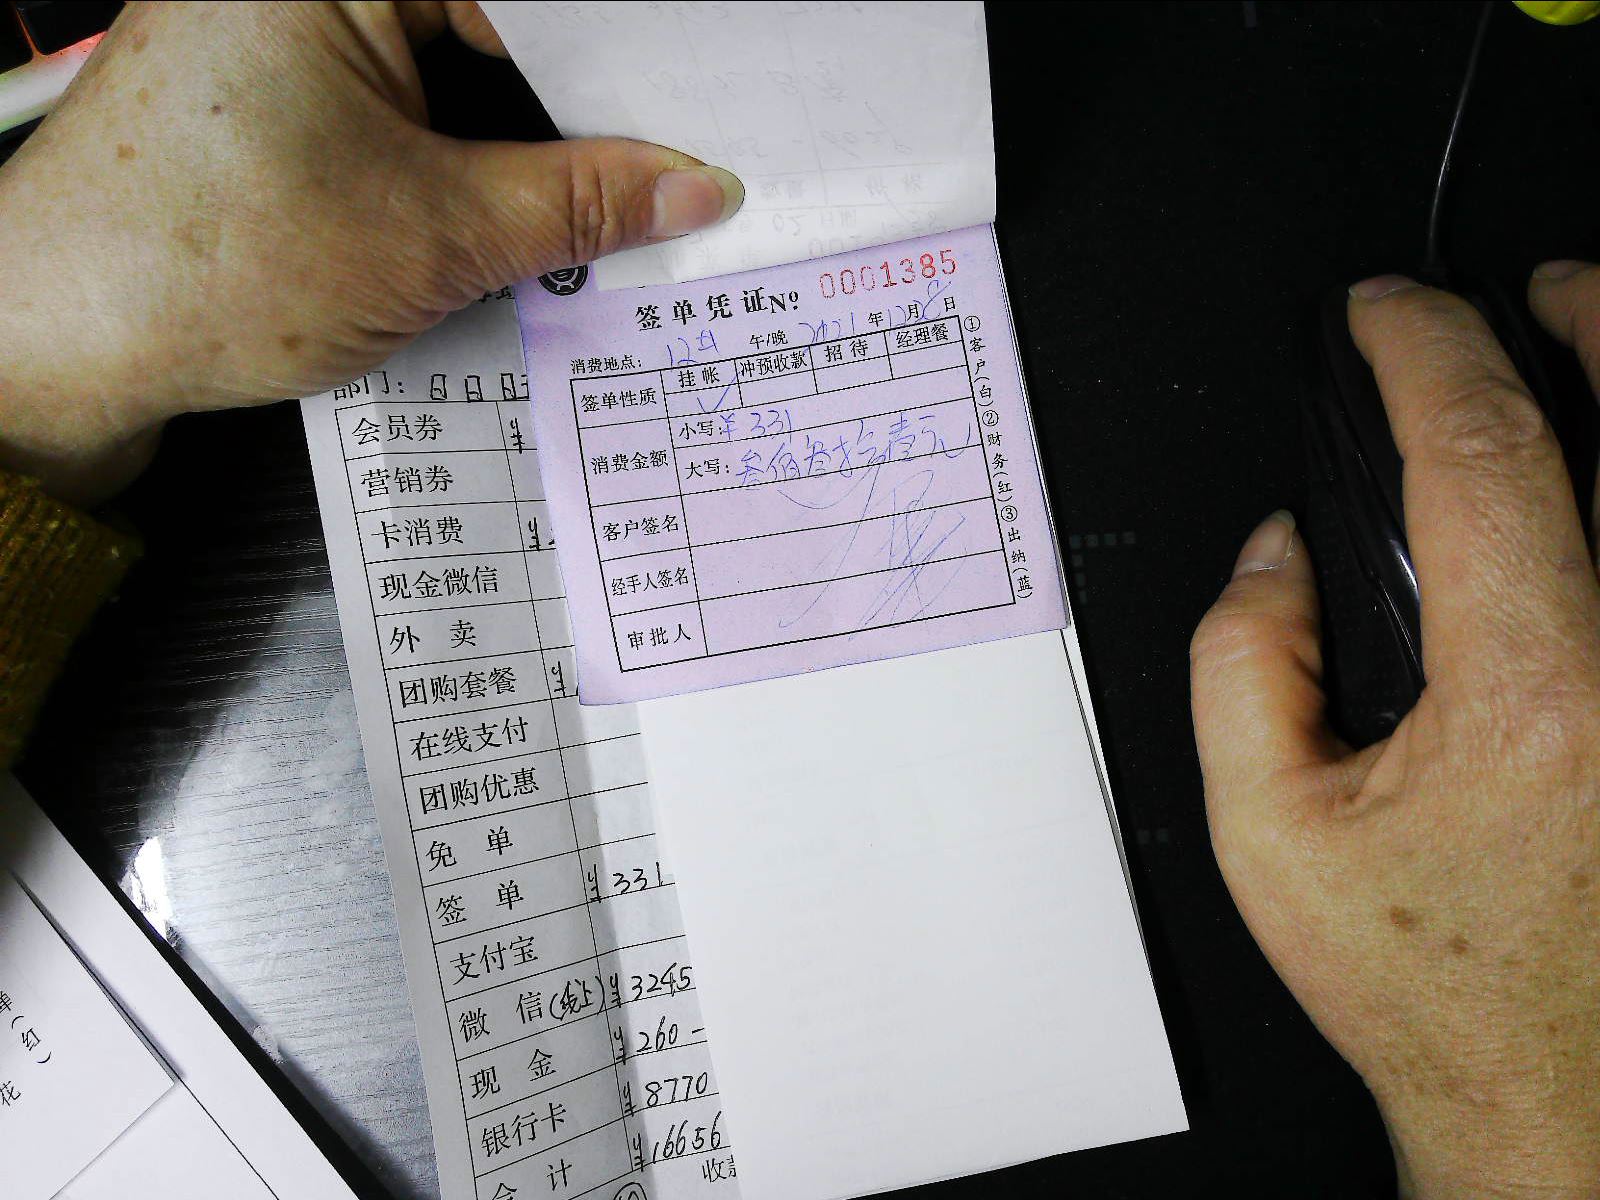 0001385
签单凭证No.
消费地点: 午/晚 2021年12月8日
签单性质 挂帐 冲预收款 招待 经理餐
✓
消费金额 小写:¥331
大写:叁佰叁拾壹元
客户签名
经手人签名
审批人
①客户(白)②财务(红)③出纳(蓝)
部门:
会员券 ¥
营销券
卡消费 ¥
现金微信
外卖
团购套餐 ¥
在线支付
团购优惠
免单
签单 ¥331
支付宝
微信(线上) ¥3245
现金 ¥260-
银行卡 ¥8770
合计 ¥16656
收款
单(红)
花